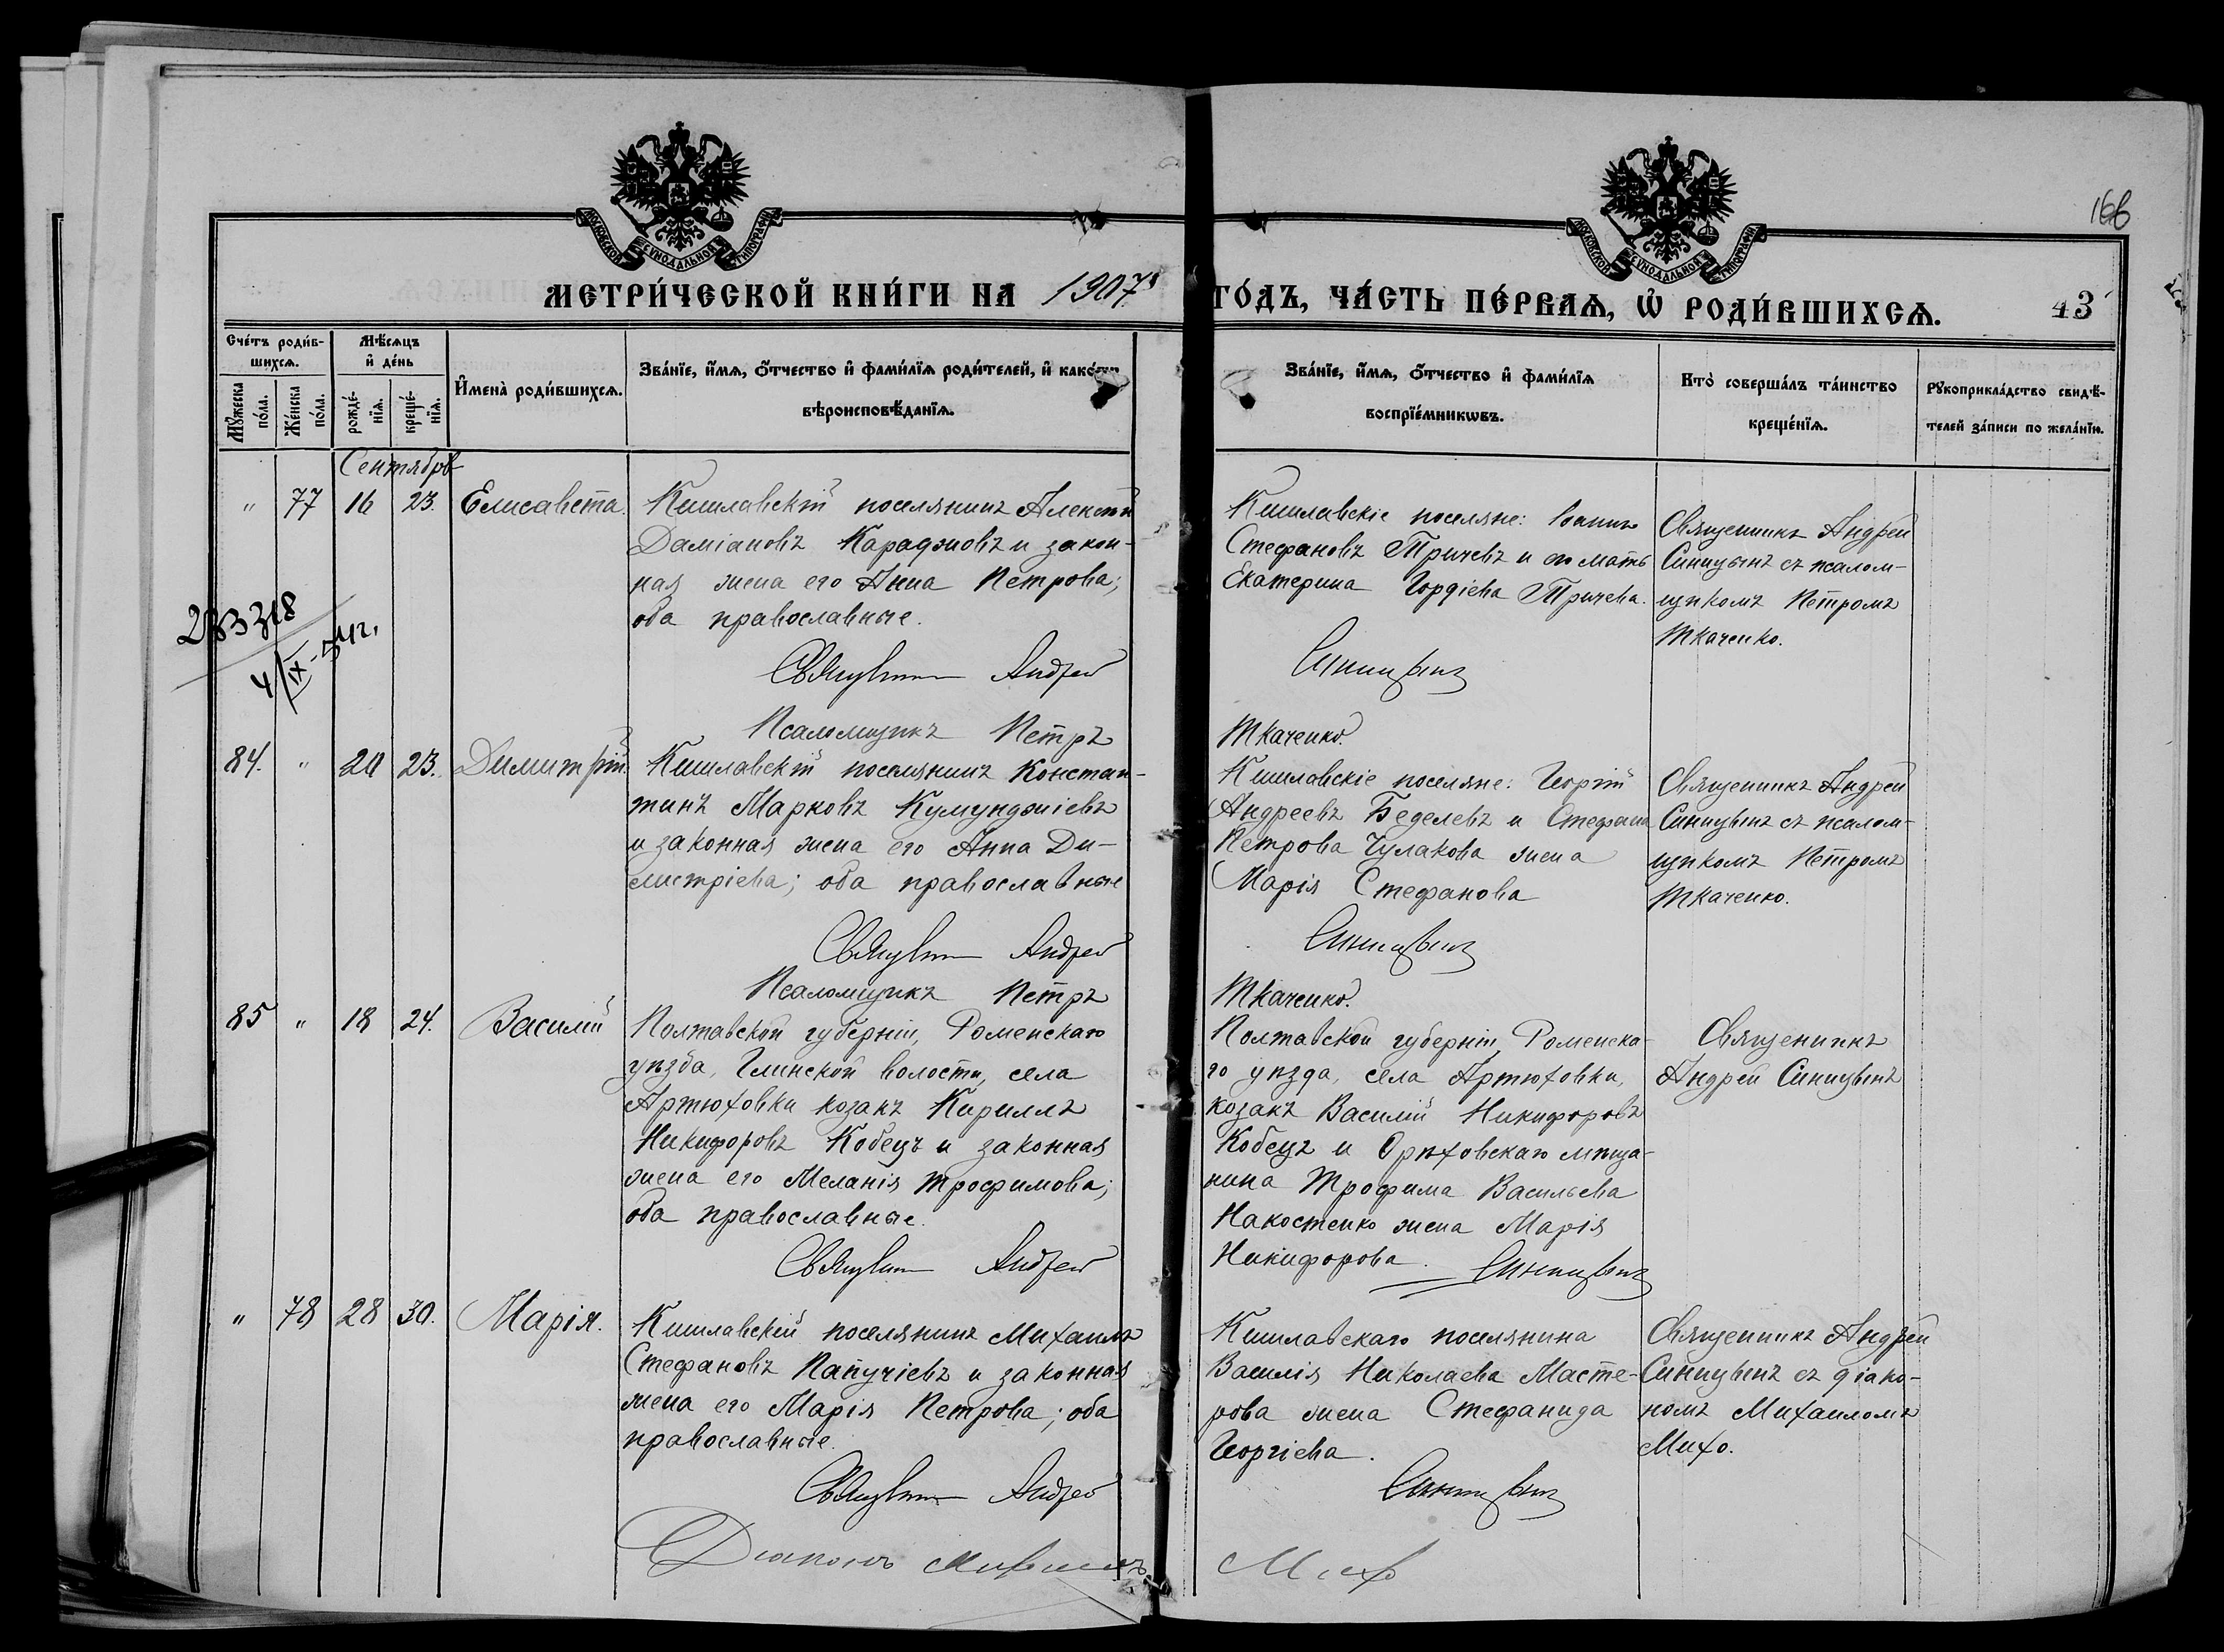 МОСКОВСКОЙ СѴНОДАЛЬНОЙ ТИПОГРАФІИ
МОСКОВСКОЙ СѴНОДАЛЬНОЙ ТИПОГРАФІИ
166
МЕТРИ́ЧЕСКОЙ КНИ́ГИ НА 1907й
ГО́ДЪ, ЧА́СТЬ ПЕ́РВАѦ, Ѡ҆ РОДИ́ВШИХСѦ.
43
Сче́тъ роди́в-
шихсѧ.
Мꙋжеска по́ла.
Же́нска по́ла.
Мѣ́сѧцъ
и҆ де́нь
рожде́-
нїѧ.
креще́-
нїѧ.
И҆мена̀ роди́вшихсѧ.
Зва́нїе, и҆́мѧ, ѻ҆́тчество и҆ фами́лїѧ роди́телей, и҆ како́гѡ
вѣроисповѣ́данїѧ.
Зва́нїе, и҆́мѧ, ѻ҆́тчество и҆ фами́лїѧ
воспрїе́мникѡвъ.
Кто̀ соверша́лъ та́инство
креще́нїѧ.
Рꙋкоприкла́дство свидѣ́-
телей за́писи по жела́нїю.
Сентябрь
" 77 16 23. Елисавета.
Кишлавскій поселянинъ Алексѣй
Даміановъ Караджовъ и закон-
ная жена его Анна Петрова;
оба православные.
Священникъ Андрей
Псаломщикъ Петръ
Кишлавскіе поселяне: Іоаннъ
Стефановъ Тричевъ и его мать
Екатерина Гордіева Тричева.
Синицынъ
Ткаченко.
Священникъ Андрей
Синицынъ съ псалом-
щикомъ Петромъ
Ткаченко.
4/IX-54г.
84. " 20 23. Димитрій.
Кишлавскій поселянинъ Констан-
тинъ Марковъ Кумунджіевъ
и законная жена его Анна Ди-
митріева; оба православные
Священникъ Андрей
Псаломщикъ Петръ
Кишлавскіе поселяне: Георгій
Андреевъ Беделевъ и Стефана
Петрова Чулакова жена
Марія Стефанова
Синицынъ
Ткаченко.
Священникъ Андрей
Синицынъ съ псалом-
щикомъ Петромъ
Ткаченко.
85 " 18 24. Василій
Полтавской губерніи, Роменскаго
уѣзда, Глинской волости, села
Артюховки козакъ Кириллъ
Никифоровъ Кобецъ и законная
жена его Меланія Трофимова;
оба православные.
Священникъ Андрей
Полтавской губерніи, Роменска-
го уѣзда, села Артюховки,
козакъ Василій Никифоровъ
Кобецъ и Орѣховскаго мѣща-
нина Трофима Васильева
Накостенко жена Марія
Никифорова.
Синицынъ
Священникъ
Андрей Синицынъ
" 78 28 30. Марія.
Кишлавскій поселянинъ Михаилъ
Стефановъ Папучіевъ и законная
жена его Марія Петрова; оба
православные.
Священникъ Андрей
Діаконъ Михаилъ
Кишлавскаго поселянина
Василія Николаева Масте-
рова жена Стефанида
Георгіева.
Синицынъ
Михо
Священникъ Андрей
Синицынъ съ діако-
номъ Михаиломъ
Михо.